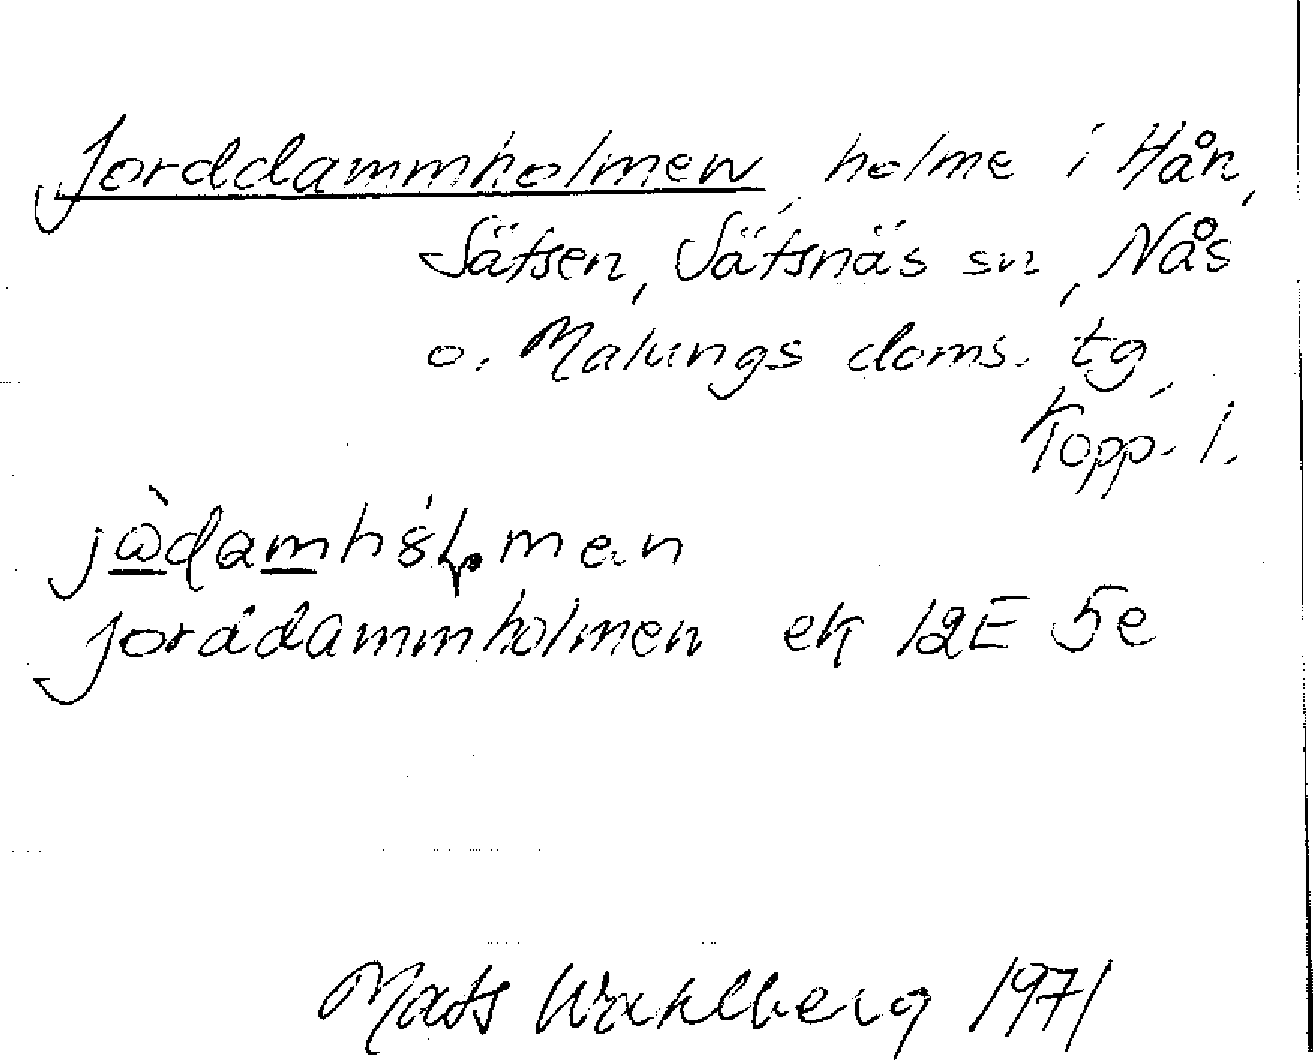 Jorddammholmen, holme i Hån,
Sätsen, Sätsnäs sn, Nås
o. Malungs doms. tg,
Kopp. l.
Jorddammholmen ek 12E 5e
Mats Wahlberg 1971